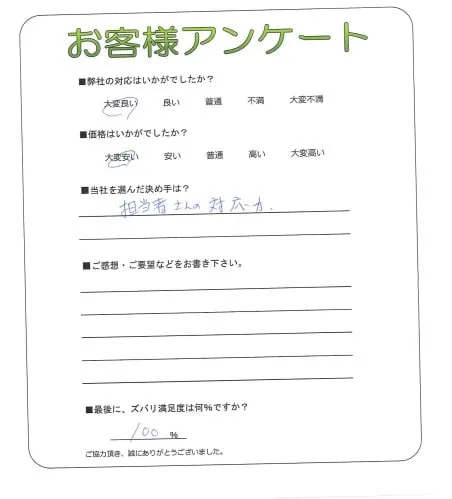 お客様アンケート
■弊社の対応はいかがでしたか？
大変良い 良い 普通 不満 大変不満
■価格はいかがでしたか？
大変安い 安い 普通 高い 大変高い
■当社を選んだ決め手は？
担当者さんの対応力.
■ご感想・ご要望などをお書き下さい。
■最後に、ズバリ満足度は何％ですか？
100 %
ご協力頂き、誠にありがとうございました。